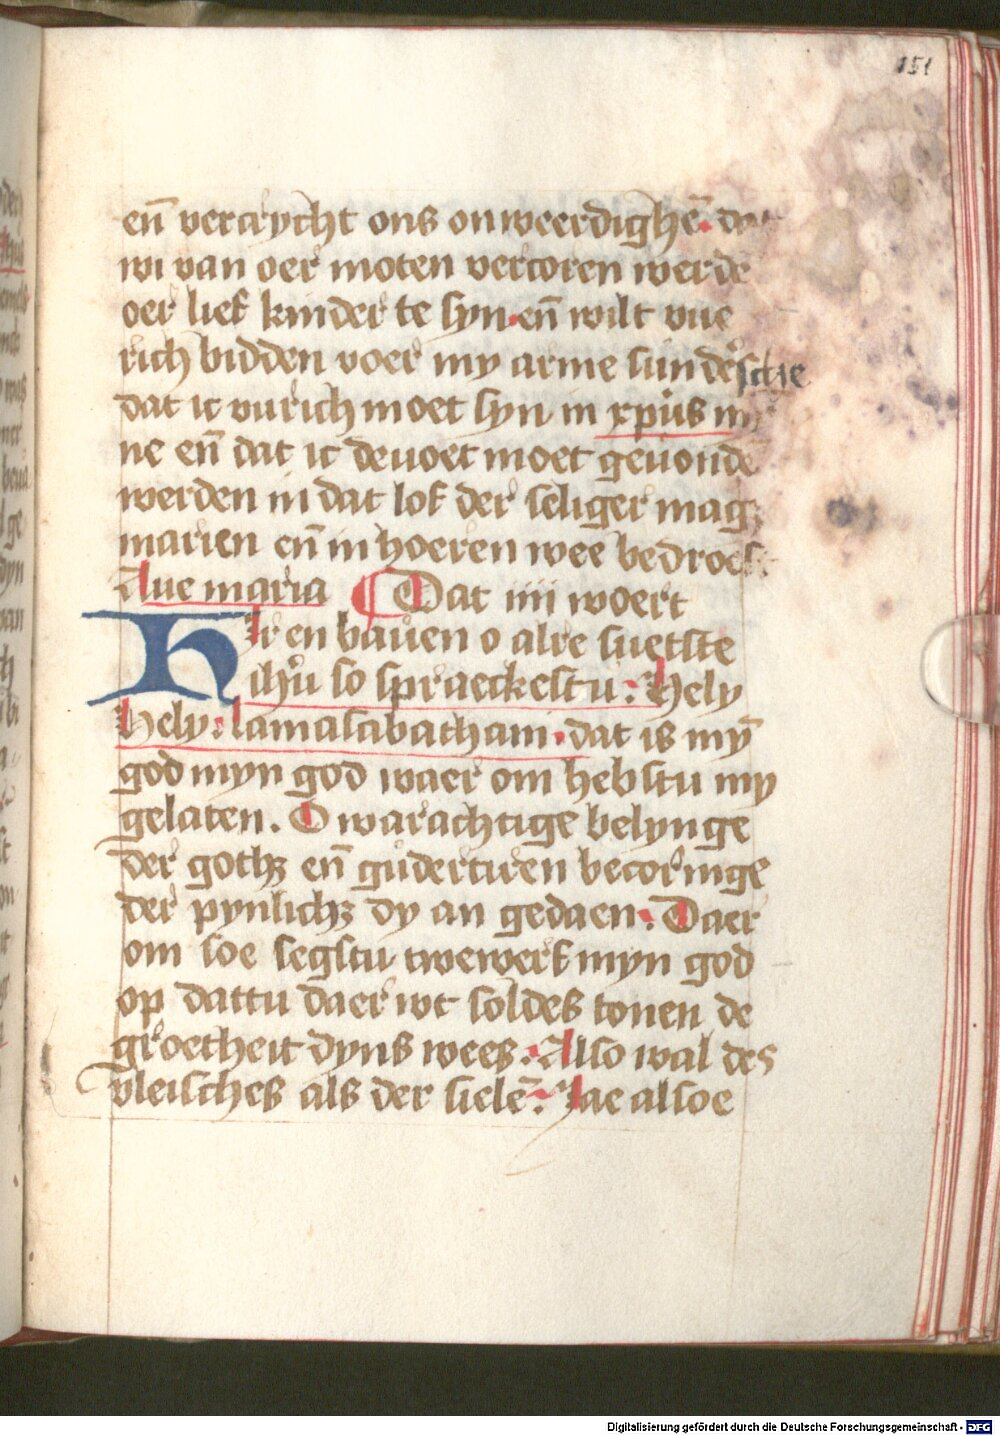 151
en̄ vercrycht ons onweerdighē. dat
wi van oer moten vercoren werdē
oer lief kinder te syn. en̄ wilt vue
rich bidden voer my arme sunders
sche
dat ic vurich moet syn in xpūs mi
ne en̄ dat ic deuoet moet geuondē
werden in dat lof der seliger mag
marien en̄ in hoeren wee bedroef
Aue maria ¶ Dat iiij woert
Hir en bauen o alre suetste
ihū so spraeckestu: Hely
hely. lamasabathani. dat is mȳ
god myn god waer om hebstu my
gelaten. O warachtige belynge
der gothꝫ en̄ gudertiren becoringe
der pynlichꝫ dy an gedaen. Daer
om soe segstu twewerf myn god
op dattu daer wt soldes tonen de
groetheit dyns wees. Also wal des
vleisches als der sielē. Jae alsoe
Digitalisierung gefördert durch die Deutsche Forschungsgemeinschaft - DFG